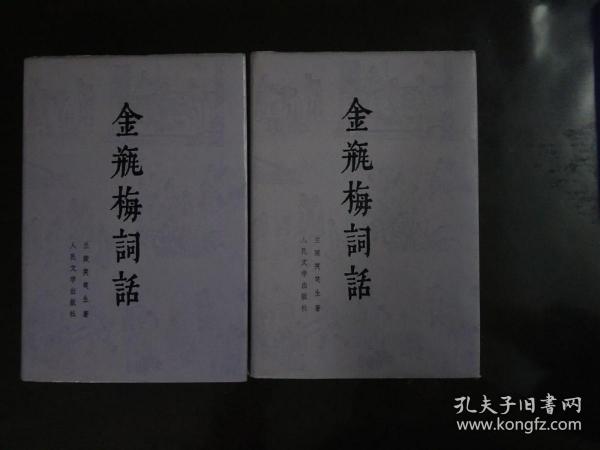 金瓶梅詞話
兰陵笑笑生著
人民文学出版社
金瓶梅詞話
兰陵笑笑生著
人民文学出版社
孔夫子旧書网
www.kongfz.com